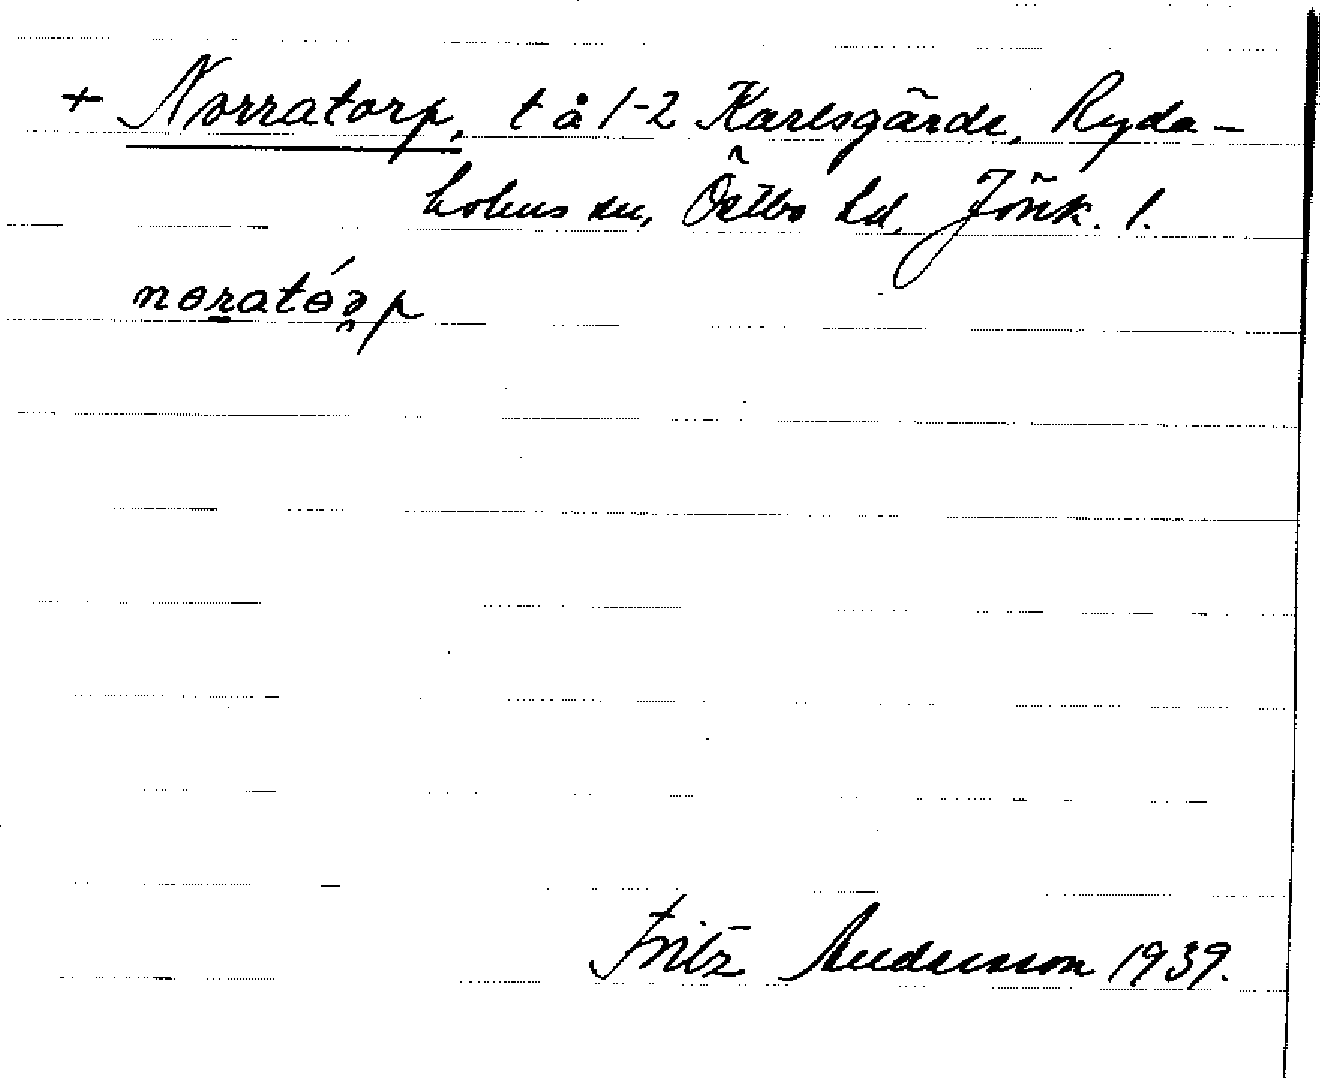 + Norratorp, t å 1-2 Karlsgärde, Ryda-
holms sn, Östbo hd, Jönk. l.
nɵratɵ́rp
Fritz Andersson 1939.